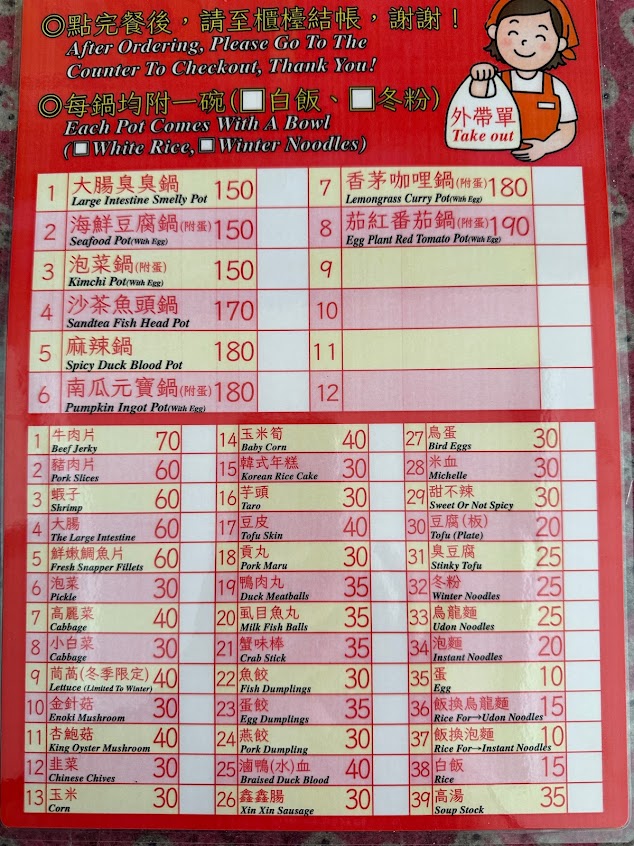 ◎點完餐後，請至櫃檯結帳，謝謝！
After Ordering, Please Go To The
Counter To Checkout, Thank You!
◎每鍋均附一碗(□白飯、□冬粉)
Each Pot Comes With A Bowl
(□White Rice,□Winter Noodles)
外帶單
Take out
1 大腸臭臭鍋 150
Large Intestine Smelly Pot
2 海鮮豆腐鍋(附蛋) 150
Seafood Pot(With Egg)
3 泡菜鍋(附蛋) 150
Kimchi Pot(With Egg)
4 沙茶魚頭鍋 170
Sandtea Fish Head Pot
5 麻辣鍋 180
Spicy Duck Blood Pot
6 南瓜元寶鍋(附蛋) 180
Pumpkin Ingot Pot(With Egg)
7 香茅咖哩鍋(附蛋) 180
Lemongrass Curry Pot(With Egg)
8 茄紅番茄鍋(附蛋) 190
Egg Plant Red Tomato Pot(With Egg)
9
10
11
12
1 牛肉片 70
Beef Jerky
2 豬肉片 60
Pork Slices
3 蝦子 60
Shrimp
4 大腸 60
The Large Intestine
5 鮮嫩鯛魚片 60
Fresh Snapper Fillets
6 泡菜 30
Pickle
7 高麗菜 40
Cabbage
8 小白菜 30
Cabbage
9 茼萵(冬季限定) 40
Lettuce (Limited To Winter)
10 金針菇 30
Enoki Mushroom
11 杏鮑菇 40
King Oyster Mushroom
12 韭菜 30
Chinese Chives
13 玉米 30
Corn
14 玉米筍 40
Baby Corn
15 韓式年糕 30
Korean Rice Cake
16 芋頭 30
Taro
17 豆皮 40
Tofu Skin
18 貢丸 30
Pork Maru
19 鴨肉丸 35
Duck Meatballs
20 虱目魚丸 35
Milk Fish Balls
21 蟹味棒 35
Crab Stick
22 魚餃 30
Fish Dumplings
23 蛋餃 35
Egg Dumplings
24 燕餃 30
Pork Dumpling
25 滷鴨(水)血 40
Braised Duck Blood
26 鑫鑫腸 30
Xin Xin Sausage
27 鳥蛋 30
Bird Eggs
28 米血 30
Michelle
29 甜不辣 30
Sweet Or Not Spicy
30 豆腐(板) 20
Tofu (Plate)
31 臭豆腐 25
Stinky Tofu
32 冬粉 25
Winter Noodles
33 烏龍麵 25
Udon Noodles
34 泡麵 20
Instant Noodles
35 蛋 10
Egg
36 飯換烏龍麵 15
Rice For→Udon Noodles
37 飯換泡麵 10
Rice For→Instant Noodles
38 白飯 15
Rice
39 高湯 35
Soup Stock